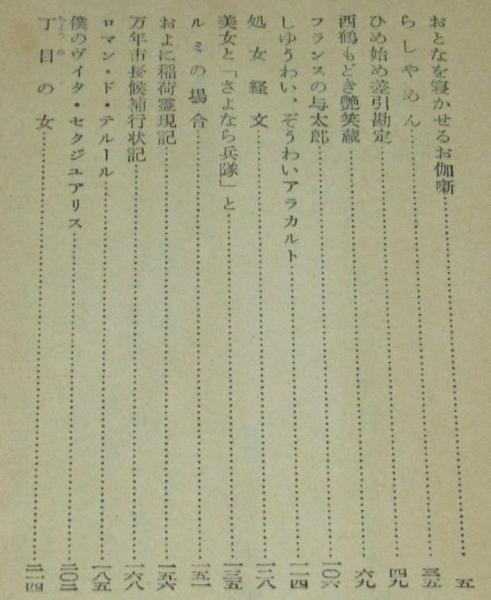 おとなを寝かせるお伽噺……五
らしやめん……三五
ひめ始め差引勘定……四九
西鶴もどき艶笑蔵……六九
フランスの与太郎……一〇六
しゆうわい、ぞうわいアラカルト……一一四
処女経文……一二八
美女と「さよなら兵隊」と……一三五
ルミの場合……一五一
およに稲荷霊現記……一五六
万年市長候補行状記……一六八
ロマン・ド・テルール……一八五
僕のヴイタ・セクジユアリス……二〇二
丁目の女……二一四